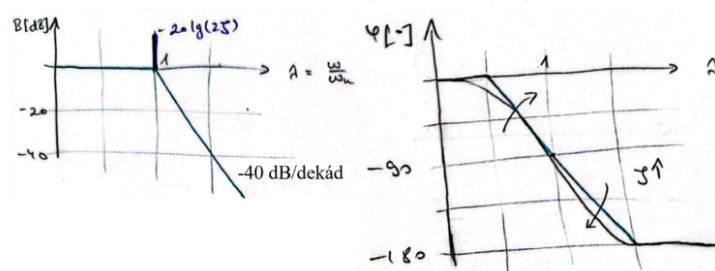 B[dB]
-20lg(2ζ)
1
λ = ω/ωn
-20
-40
-40 dB/dekád
φ[-]
1
λ
-90
ζ↑
-180